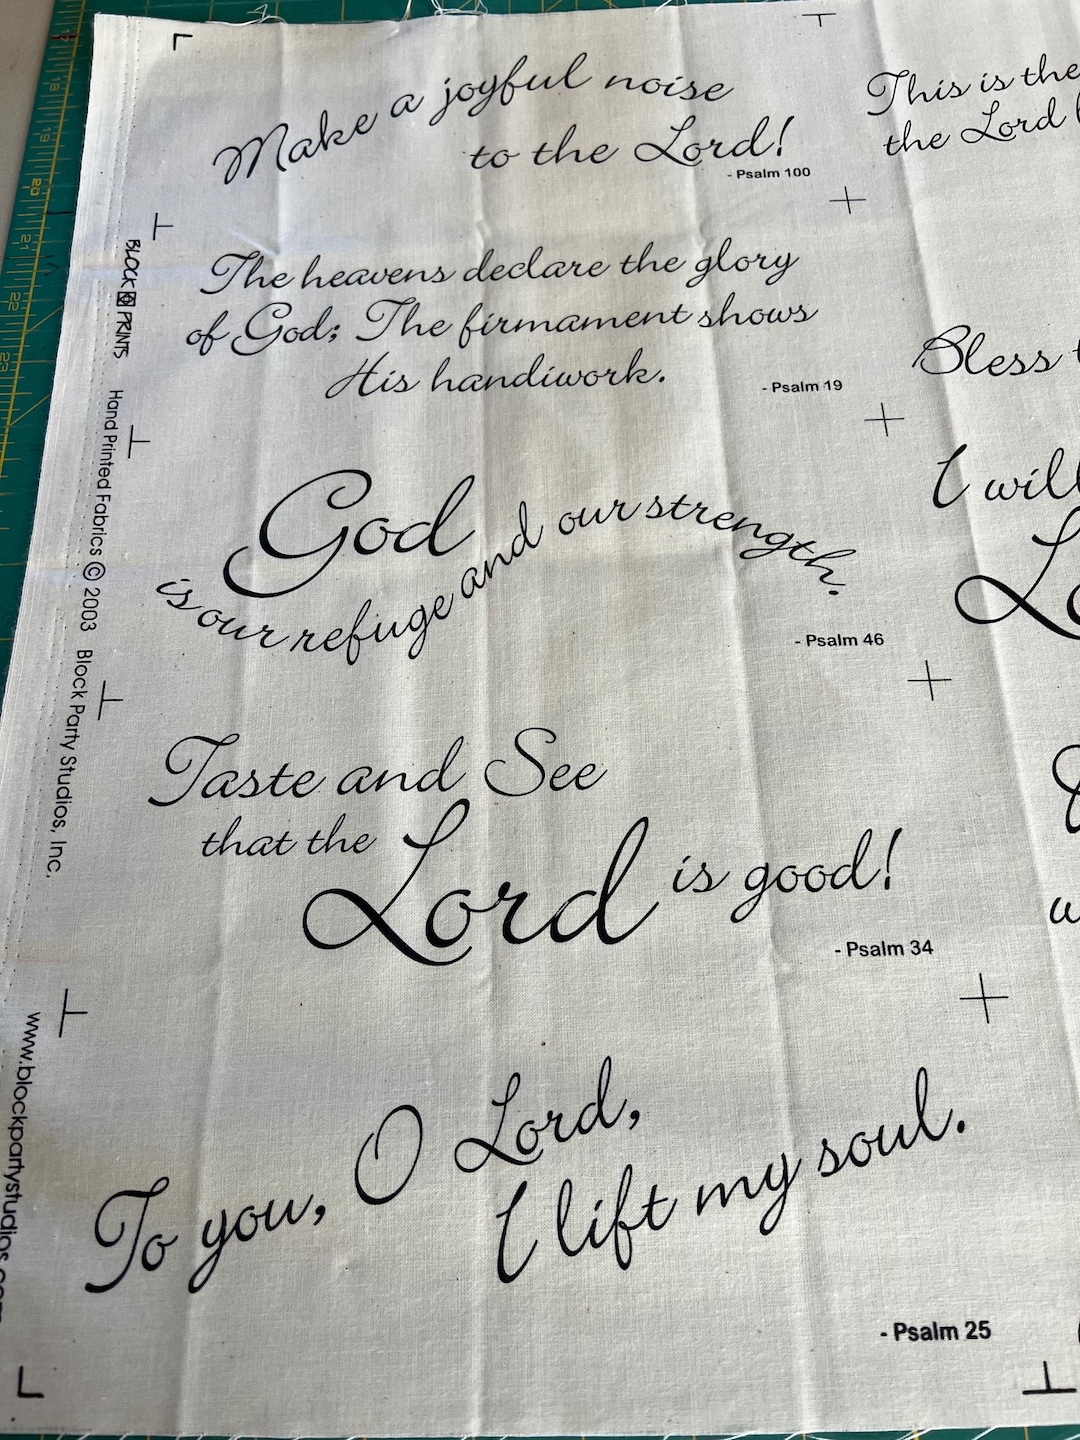 Make a joyful noise
to the Lord!
- Psalm 100
The heavens declare the glory
of God; The firmament shows
His handiwork.
- Psalm 19
God
is our refuge and our strength.
- Psalm 46
Taste and See
that the
Lord is good!
- Psalm 34
To you, O Lord,
I lift my soul.
- Psalm 25
This is the
the Lord
Bless
I will
BLOCK PRINTS Hand Printed Fabrics © 2003 Block Party Studios, Inc.
www.blockpartystudios.com
19
20
21
22
23